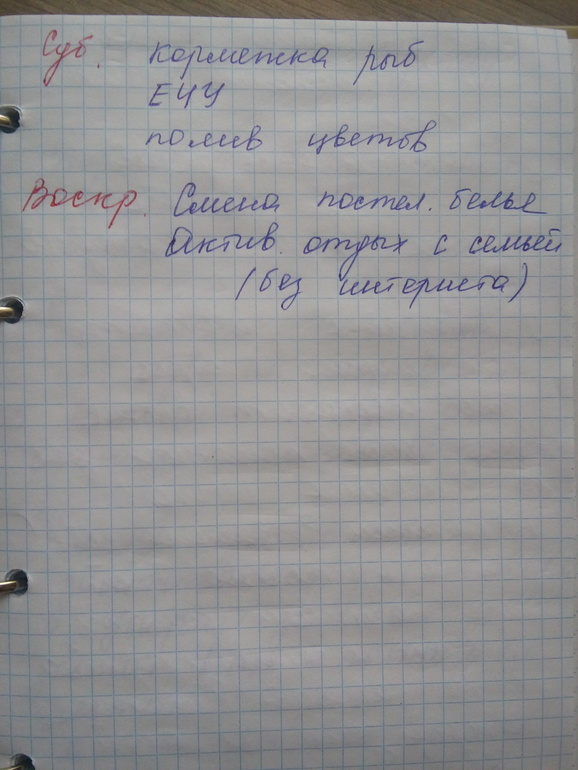 Суб. Кормежка рыб
ЕЦУ
полив цветов
Воскр. Смена постел. белье
Актив. отдых с семьей
(без интериста)